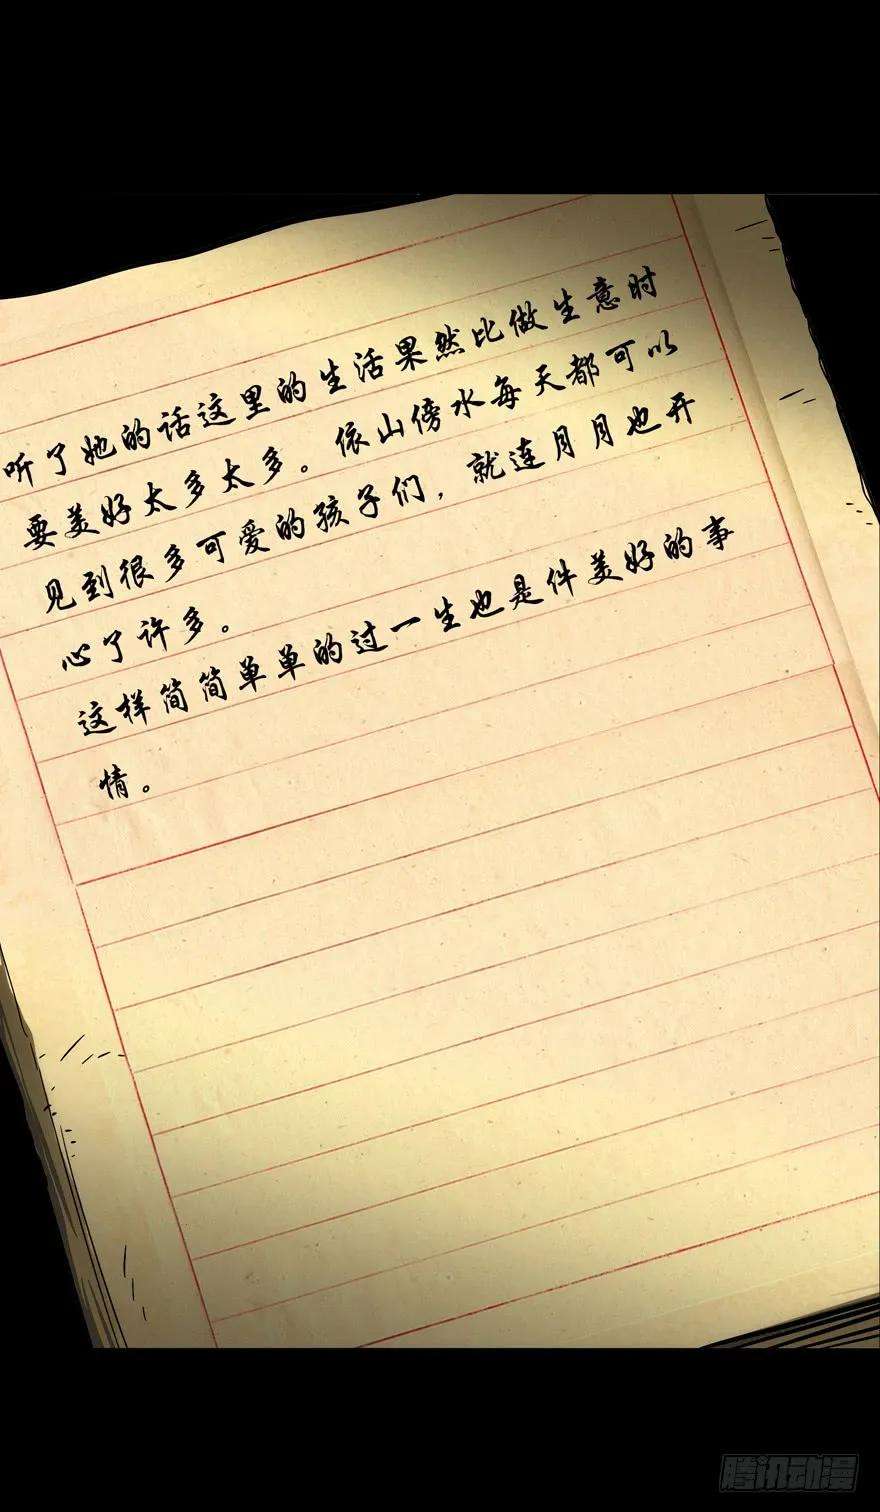 听了她的话这里的生活果然比做生意时
要美好太多太多。依山傍水每天都可以
见到很多可爱的孩子们，就连月月也开
心了许多。
这样简简单单的过一生也是件美好的事
情。
腾讯动漫